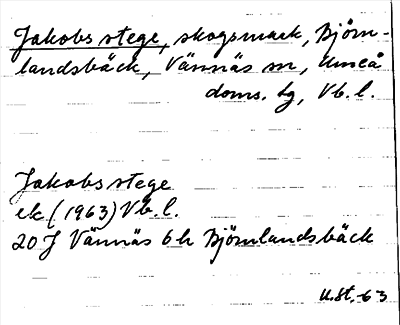 Jakobs stege, skogsmark, Björn-
landsbäck, Vännäs sn, Umeå
doms. tg, Vb. l.
Jakobs stege
ek (1963) Vb. l.
20J Vännäs 6h Björnlandsbäck
U.st. 63